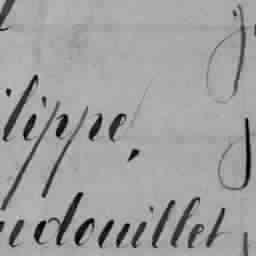 ilippe,
udouillet